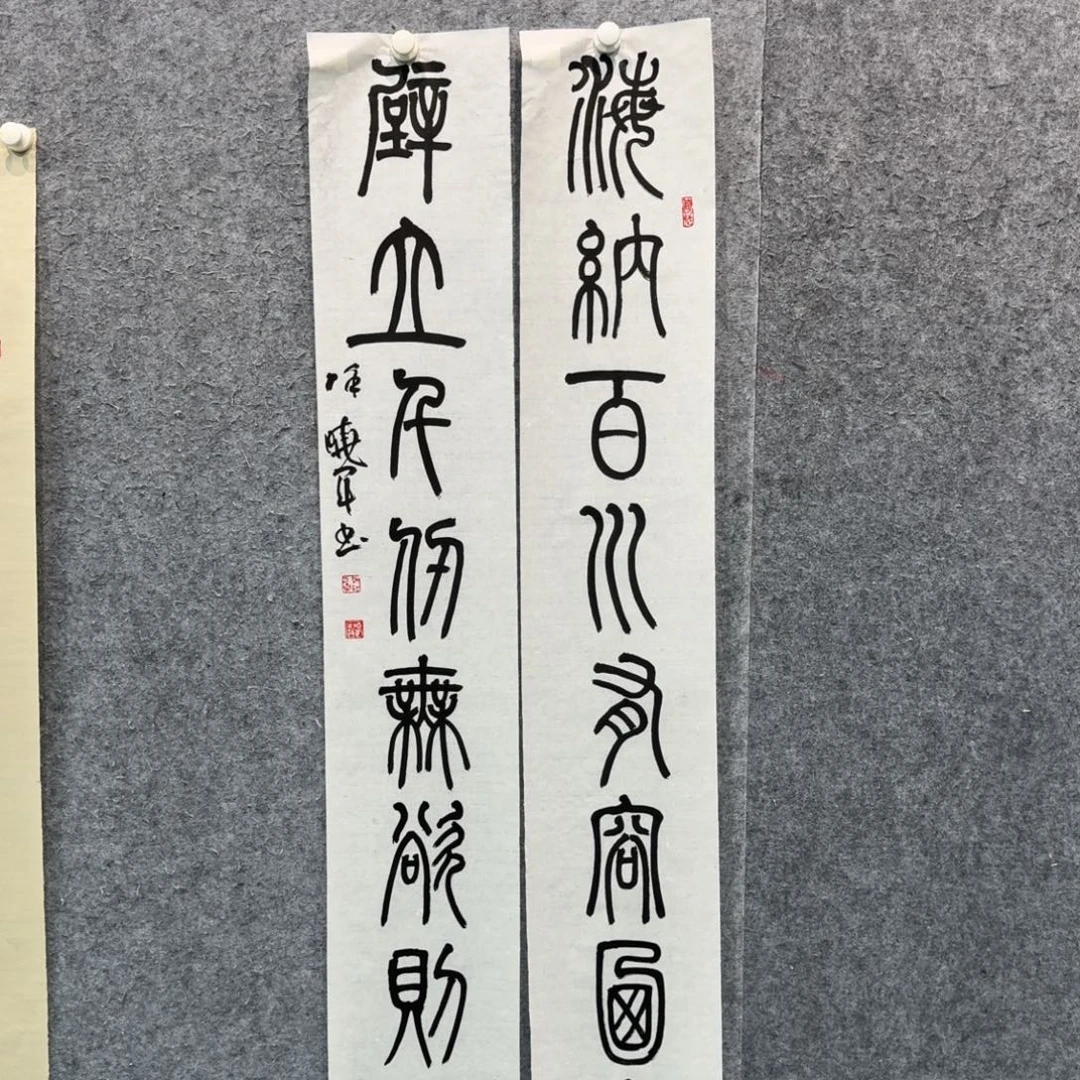 海納百川有容乃
壁立千仞無欲則
曉軍书